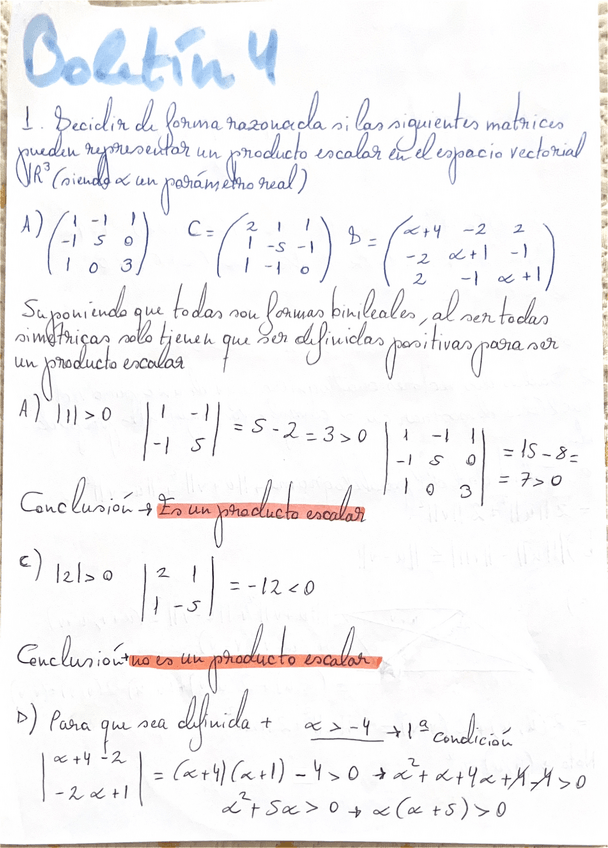 Boletín 4
1. Decidir de forma razonada si las siguientes matrices
pueden representar un producto escalar en el espacio vectorial
ℝ³ (siendo α un parámetro real)
A) (1 -1 1; -1 5 0; 1 0 3) C = (2 1 1; 1 -5 -1; 1 -1 0) D = (α+4 -2 2; -2 α+1 -1; 2 -1 α+1)
Suponiendo que todas son formas binileales, al ser todas
simétricas solo tienen que ser definidas positivas para ser
un producto escalar
A) |1| > 0 |1 -1; -1 5| = 5 - 2 = 3 > 0 |1 -1 1; -1 5 0; 1 0 3| = 15 - 8 =
= 7 > 0
Conclusión → Es un producto escalar
C) |2| > 0 |2 1; 1 -5| = -12 < 0
Conclusión → no es un producto escalar
D) Para que sea definida + α > -4 → 1ª condición
|α+4 -2; -2 α+1| = (α+4)(α+1) - 4 > 0 → α² + α + 4α + 4 - 4 > 0
α² + 5α > 0 → α(α+5) > 0